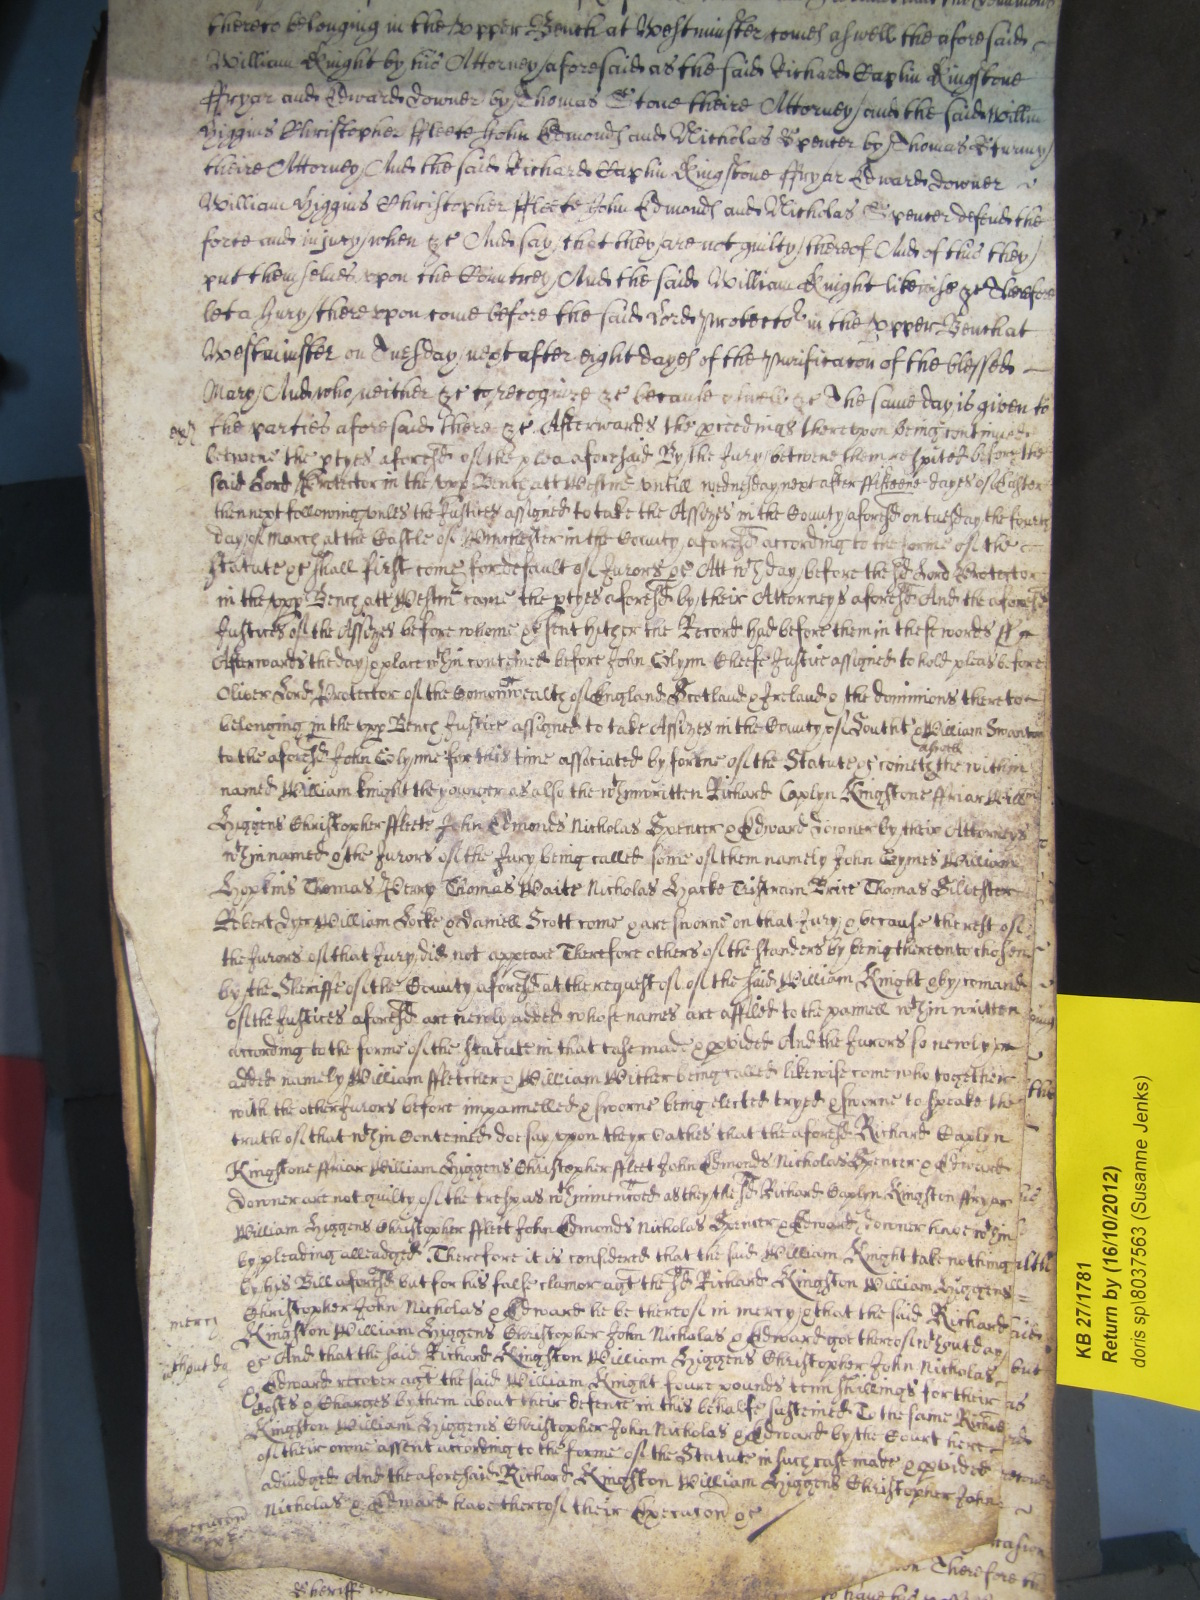 thereto belonging in the Upper Bench at Westminster comes aswell the aforesaid
William Knight by his Attorney aforesaid as the said Richard Caplin Kingstone
ffryar and Edward Downer by Thomas Stone theire Attorney and the said Willm
Higgins Christopher ffleete John Edmonds and Nicholas Spencer by Thomas
theire Attorney And the said Richard Caplin Kingstone ffryar Edward Downer
William Higgins Christopher ffleete John Edmonds and Nicholas Spencer defend the
force and injury when &c And say that they are not guilty thereof And of this they
put themselves upon the Countrey And the said William Knight likewise &c Therefore
let a Jury thereupon come before the said Lord Protector in the Upper Bench at
Westminster on Tuesday next after eight dayes of the Purificacon of the blessed
Mary And who neither &c to recognize &c because aswell &c The same day is given to
the parties aforesaid there &c Afterwards the pceedings thereupon being continued
betweene the ptyes aforesd of the plea aforesaid By the Jury betwene them respited before the
said Lord Protector in the upp Bench att Westmr untill wednesday next after ffifteene dayes of Easter
then next following unles the Justices assigned to take the Assizes in the County aforesd on tuesday the fourth
day of March at the Castle of Winchester in the County aforesd according to the forme of the
Statute &c shall first come for default of Jurors &c Att wch day before the sd Lord Protector
in the upp Bench att Westmr came the ptyes aforesd by their Attorneys aforesd And the aforesd
Justices of the Assizes before whome &c sent hither the Record had before them in these words ss
Afterwards the day & place wthin conteined before John Glynn Cheefe Justice assigned to hold pleas before
Oliver Lord Protector of the Comonwealth of England Scotland & Ireland & the dominions thereto
belonging in the upp Bench Justice assigned to take Assizes in the County of Southt & William Swanton
to the aforesd John Glynne for this time associated by forme of the Statute &c cometh aswell the within
named William Knight the younger as also the wthinwritten Richard Caplyn Kingstone ffriar Willm
Higgens Christopher ffleete John Edmonds Nicholas Spencer & Edward Downer by their Attorneys
wthin named & the Jurors of the Jury being called some of them namely John Eymes William
Hopkins Thomas Perry Thomas Waite Nicholas Hacke Tristram Brice Thomas Sillvester
Robert Dyer William Locke & Daniell Scott come & are sworne on that Jury & because the rest of
the Jurors of that Jury did not appeare Therefore others of the standers by being thereunto chosen
by the Sheriffe of the County aforesd at the request of of the said William Knight & by comand
of the Justices aforesd are newly added whose names are affiled to the pannell wthin written
according to the forme of the Statute in that case made & pvided And the Jurors so newly
added namely William ffletcher & William Wither being called likewise come who together
with the other Jurors before impannelled & sworne being elected tryed & sworne to speake the
truth of that wthin Conteined doe say upon theyr Oathes that the aforesd Richard Caplyn
Kingstone ffriar William Higgens Christopher ffleet John Edmonds Nicholas Spencer & Edward
Downer are not guilty of the trespas wthinmentoed as they the sd Richard Caplyn Kingston ffryar
William Higgens Christopher ffleet John Edmonds Nicholas Spencer & Edward Downer have wthin
by pleading alleadged Therefore it is considered that the said William Knight take nothing
by his Bill aforesd but for his false clamor agt the sd Richard Kingston William Higgens
Christopher John Nicholas & Edward he be thereof in mercy & that the said Richard
mercy
Kingston William Higgens Christopher John Nicholas & Edward goe thereof wthout day
&c And that the said Richard Kingston William Higgens Christopher John Nicholas
wthout day
& Edward recover agt the said William Knight foure pounds tenn shillings for their
Costs & Charges by them about their defence in this behalfe susteined To the same Richard
Kingston William Higgens Christopher John Nicholas & Edward by the Court here
of their owne assent according to the forme of the Statute in such case made & pvided
adiudged And the aforesaid Richard Kingston William Higgens Christopher John
Nicholas & Edward have thereof their Execucon &c
Execucon
Therefore
Sheriffe
KB 27/1781
Return by (16/10/2012)
doris sp\8037563 (Susanne Jenks)